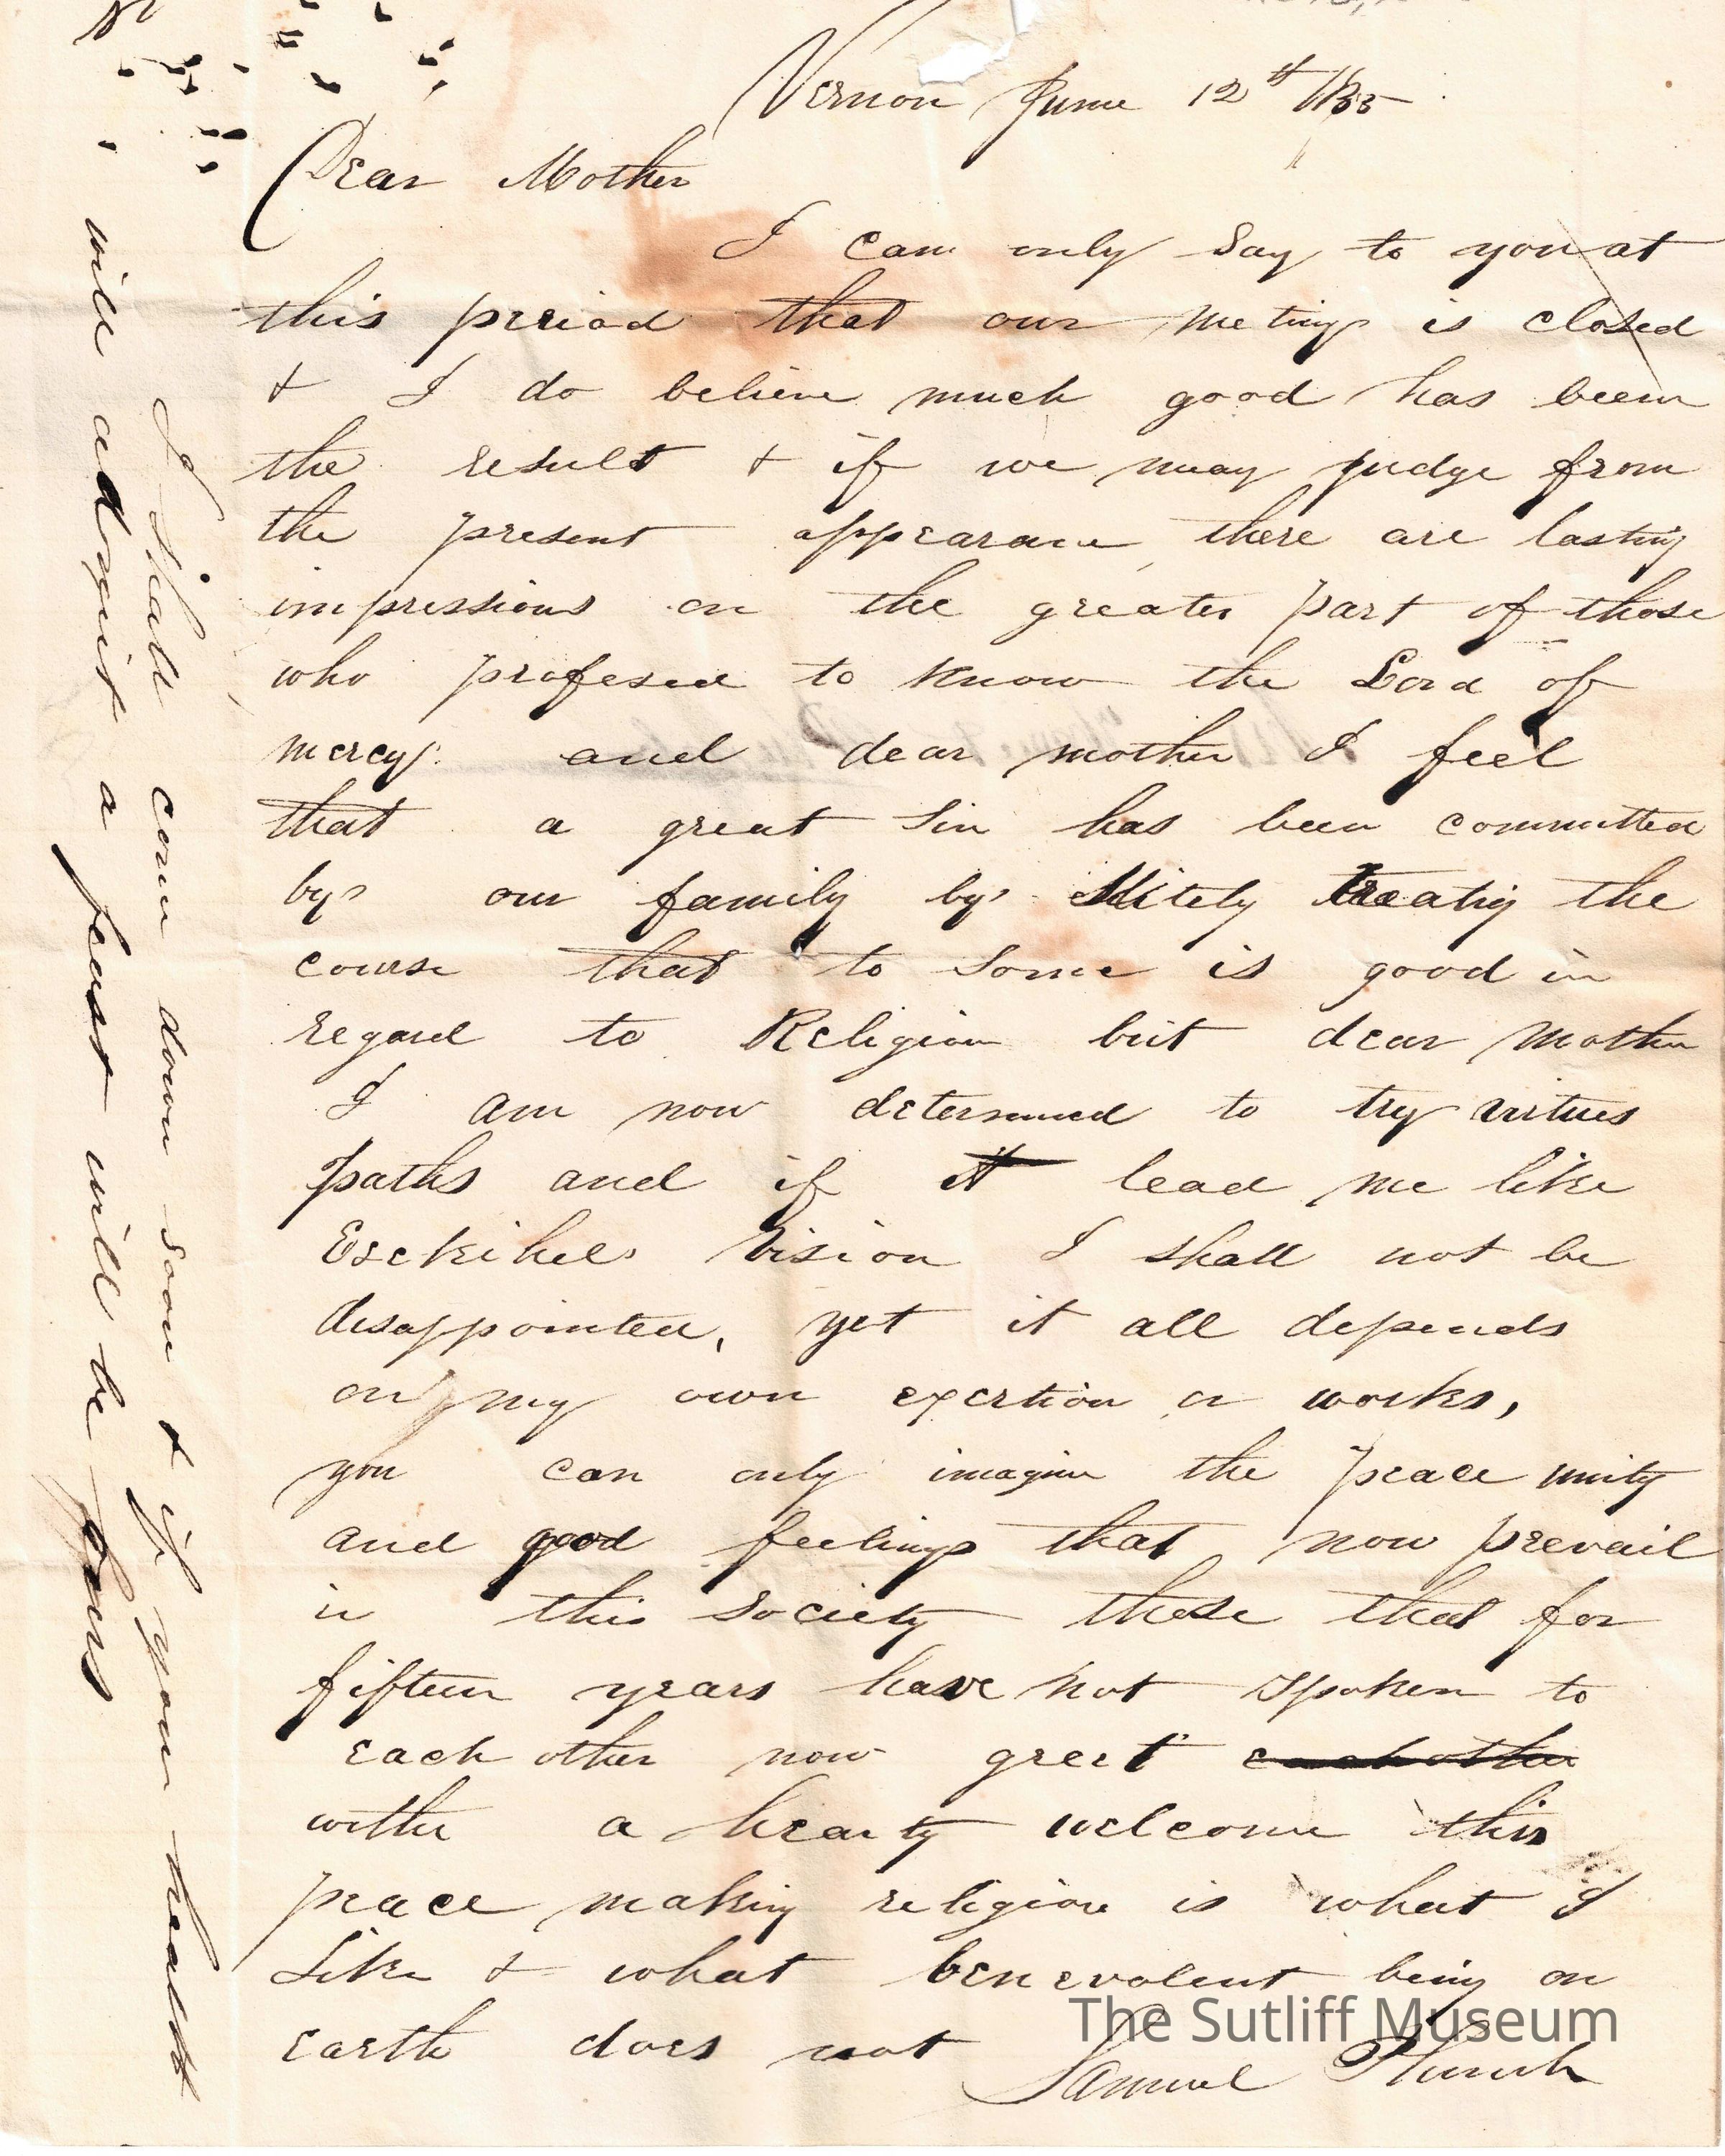 Vernon June 12th 1835
Dear Mother
I can only say to you at
this period that our meting is closed
& I do believe much good has been
the result & if we may judge from
the present appearance there are lasting
impressions on the greater part of those
who profesed to know the Lord of
mercy. and dear mother I feel
that a great sin has been committed
by our family by slitely treatig the
course that to some is good in
regard to Religion but dear Mother
I am now determined to try virtues
paths and if it lead me like
Esekihels vision I shall not be
disappointed, yet it all depends
on my own exertion or works,
you can only imagine the peace unity
and good feelings that now prevail
in this society those that for
fifteen years have not spoken to
each other now greet each other
withe a hearty welcome this
peace making religion is what I
Like & what benevolent being on
earth does not
Samuel Plumb
I shall come down soon & if your health
will admit a feast will be ours
The Sutliff Museum